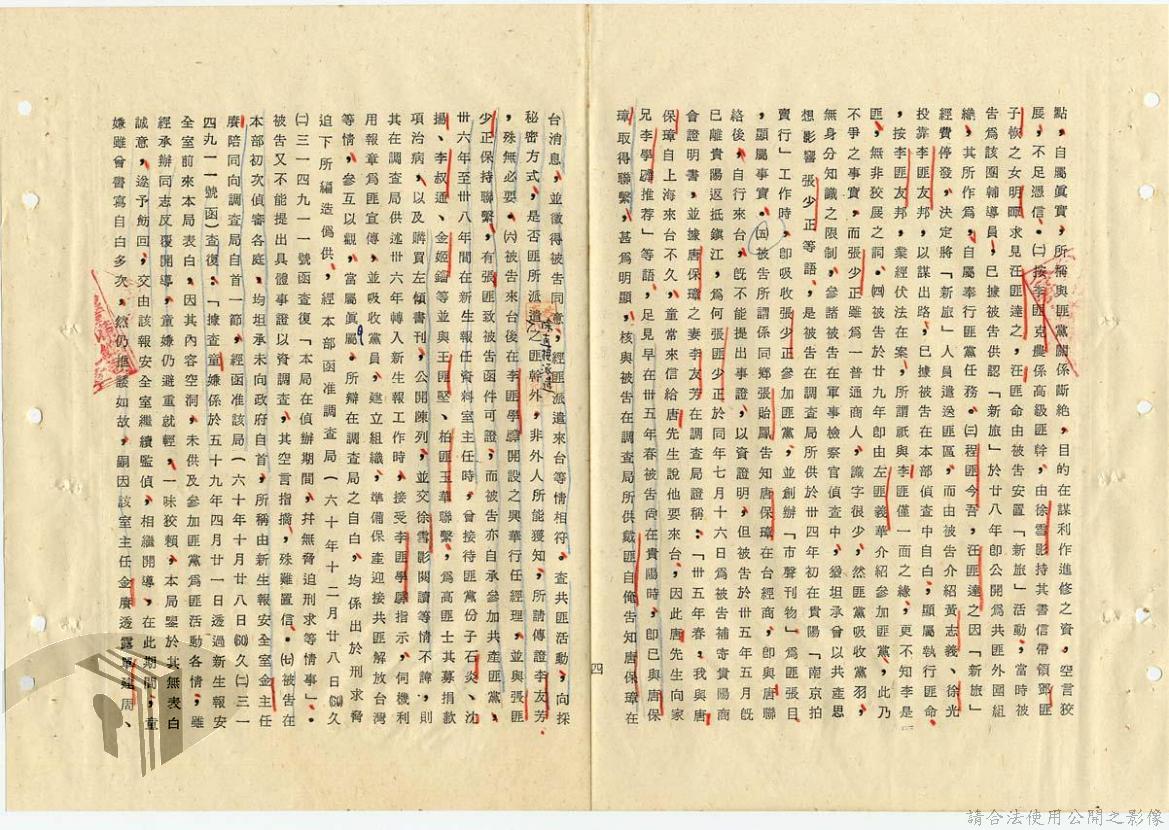 點，自屬眞實，所稱與匪黨關係斷絶，目的在謀利作進修之資，空言狡
展，不足憑信。㈡按李匪克農係高級匪幹，由徐雪影持其書信帶領鄧匪
子恢之女明暐求見汪匪達之，汪匪命由被告安置「新旅」活動，當時被
告爲該團輔導員，已據被告供認「新旅」於廿八年卽公開爲共匪外圍組
織，其所作爲，自屬奉行匪黨任務。㈢程匪今吾，汪匪達之因「新旅」
經費停發，決定將「新旅」人員遣送匪區，而由被告介紹黃志義、徐光
投靠李匪友邦，以謀出路，已據被告在本部偵查中自白，顯屬執行匪命
，按李匪友邦，業經伏法在案，所謂祇與李匪僅一面之緣，更不知李是
匪，無非狡展之詞。㈣被告於廿九年卽由左匪義華介紹參加匪黨，此乃
不爭之事實，而張少正雖爲一普通商人，識字很少，然匪黨吸收黨羽，
無身分知識之限制，參諸被告在軍事檢察官偵查中，發坦承曾以共產思
想影響張少正等語，是被告在調查局所供於卅四年初在貴陽「南京拍
賣行」工作時，卽吸收張少正參加匪黨，並創辦「市聲刊物」爲匪張目
，顯屬事實。㈤被告所謂係同鄉張貽鳳告知唐保璋在台經商，卽與唐聯
絡後，自行來台，旣不能提出事證，以資證明，但被告於卅五年五月旣
已離貴陽返抵鎮江，爲何張匪少正於同年七月十六日爲被告補寄貴陽商
會證明書，並據唐保璋之妻李友芳在調查局證稱：「卅五年春，我與唐
保璋自上海來台不久，童常來信給唐先生說他要來台，因此唐先生向家
兄李學驌推荐」等語，足見早在卅五年春被告尙在貴陽時，卽已與唐保
璋取得聯繫，甚爲明顯，核與被告在調查局所供戴匪自俺告知唐保璋在
四
台消息，並徵得被告同意，經匪派遣來台等情相符，查共匪活動，向採
秘密方式，是否匪所派遣之匪幹外，非外人所能獲知，所請傳證李友芳
，殊無必要。㈥被告來台後在李匪學驌開設之興華行任經理，並與張匪
少正保持聯繫，有張匪致被告函件可證，而被告亦自承參加共產匪黨，
卅六年至卅八年間在新生報任資料室主任時，曾接待匪黨份子石炎、沈
揚、李叔通、金姬鎦等並與王匪堅、柏匪玉華聯繫，爲高匪士其募捐款
項治病，以及購買左傾書刊，公開陳列，並交徐雪影閱讀等情不諱，則
其在調查局供述卅六年轉入新生報工作時，接受李匪學驌指示，伺機利
用報章爲匪宣傳，並吸收黨員，建立組織，準備保產迎接共匪解放台灣
等情，參互以觀，當屬眞實，所辯在調查局之自白，均係出於刑求脅
迫下所編造僞供，經本部函准調查局（六十年十二月廿八日㈥久
㈡三一四九一一號函查復「本局在偵辦期間，幷無脅迫刑求等情事」。
被告又不能提出具體事證以資調查，其空言指摘，殊難置信。㈦被告在
本部初次偵審各庭，均坦承未向政府自首，所稱由新生報安全室金主任
賡陪同向調查局自首一節，經函准該局（六十年十月廿八日㈥久㈡三一
四九一一號函）查復：「據查童嫌係於五十九年四月廿一日透過新生報安
全室前來本局表白，因其內容空洞，未供及參加匪黨爲匪活動各情，雖
經承辦同志反覆開導，童嫌仍避重就輕，一味狡賴，本局鑒於其無表白
誠意，遂予飭回，交由該報安全室繼續監偵，相繼開導，在此期間，童
嫌雖曾書寫自白多次，然仍推諉如故，嗣因該室主任金賡透露單建周、
請合法使用公開之影像